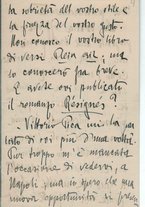 la sobrietà del vostro stile e
la finezza del vostro gusto.
Non conosco il vostro libro
di versi ma lo
conoscerò fra breve.
E avete voi pubblicato
il romanzo Resignés?
Vittorio Pica mi ha parlato
di voi più d'una volta.
Pur troppo m'è mancata
l'occasione di vedervi, a
Napoli; ma io spero che una
nuova opportunità si presen